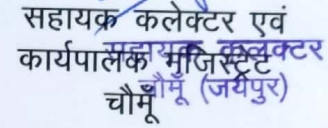 सहायक कलेक्टर एवं
कार्यपालक मजिस्ट्रेट
चौमूँ
सहायक कलक्टर
चौमूँ (जयपुर)